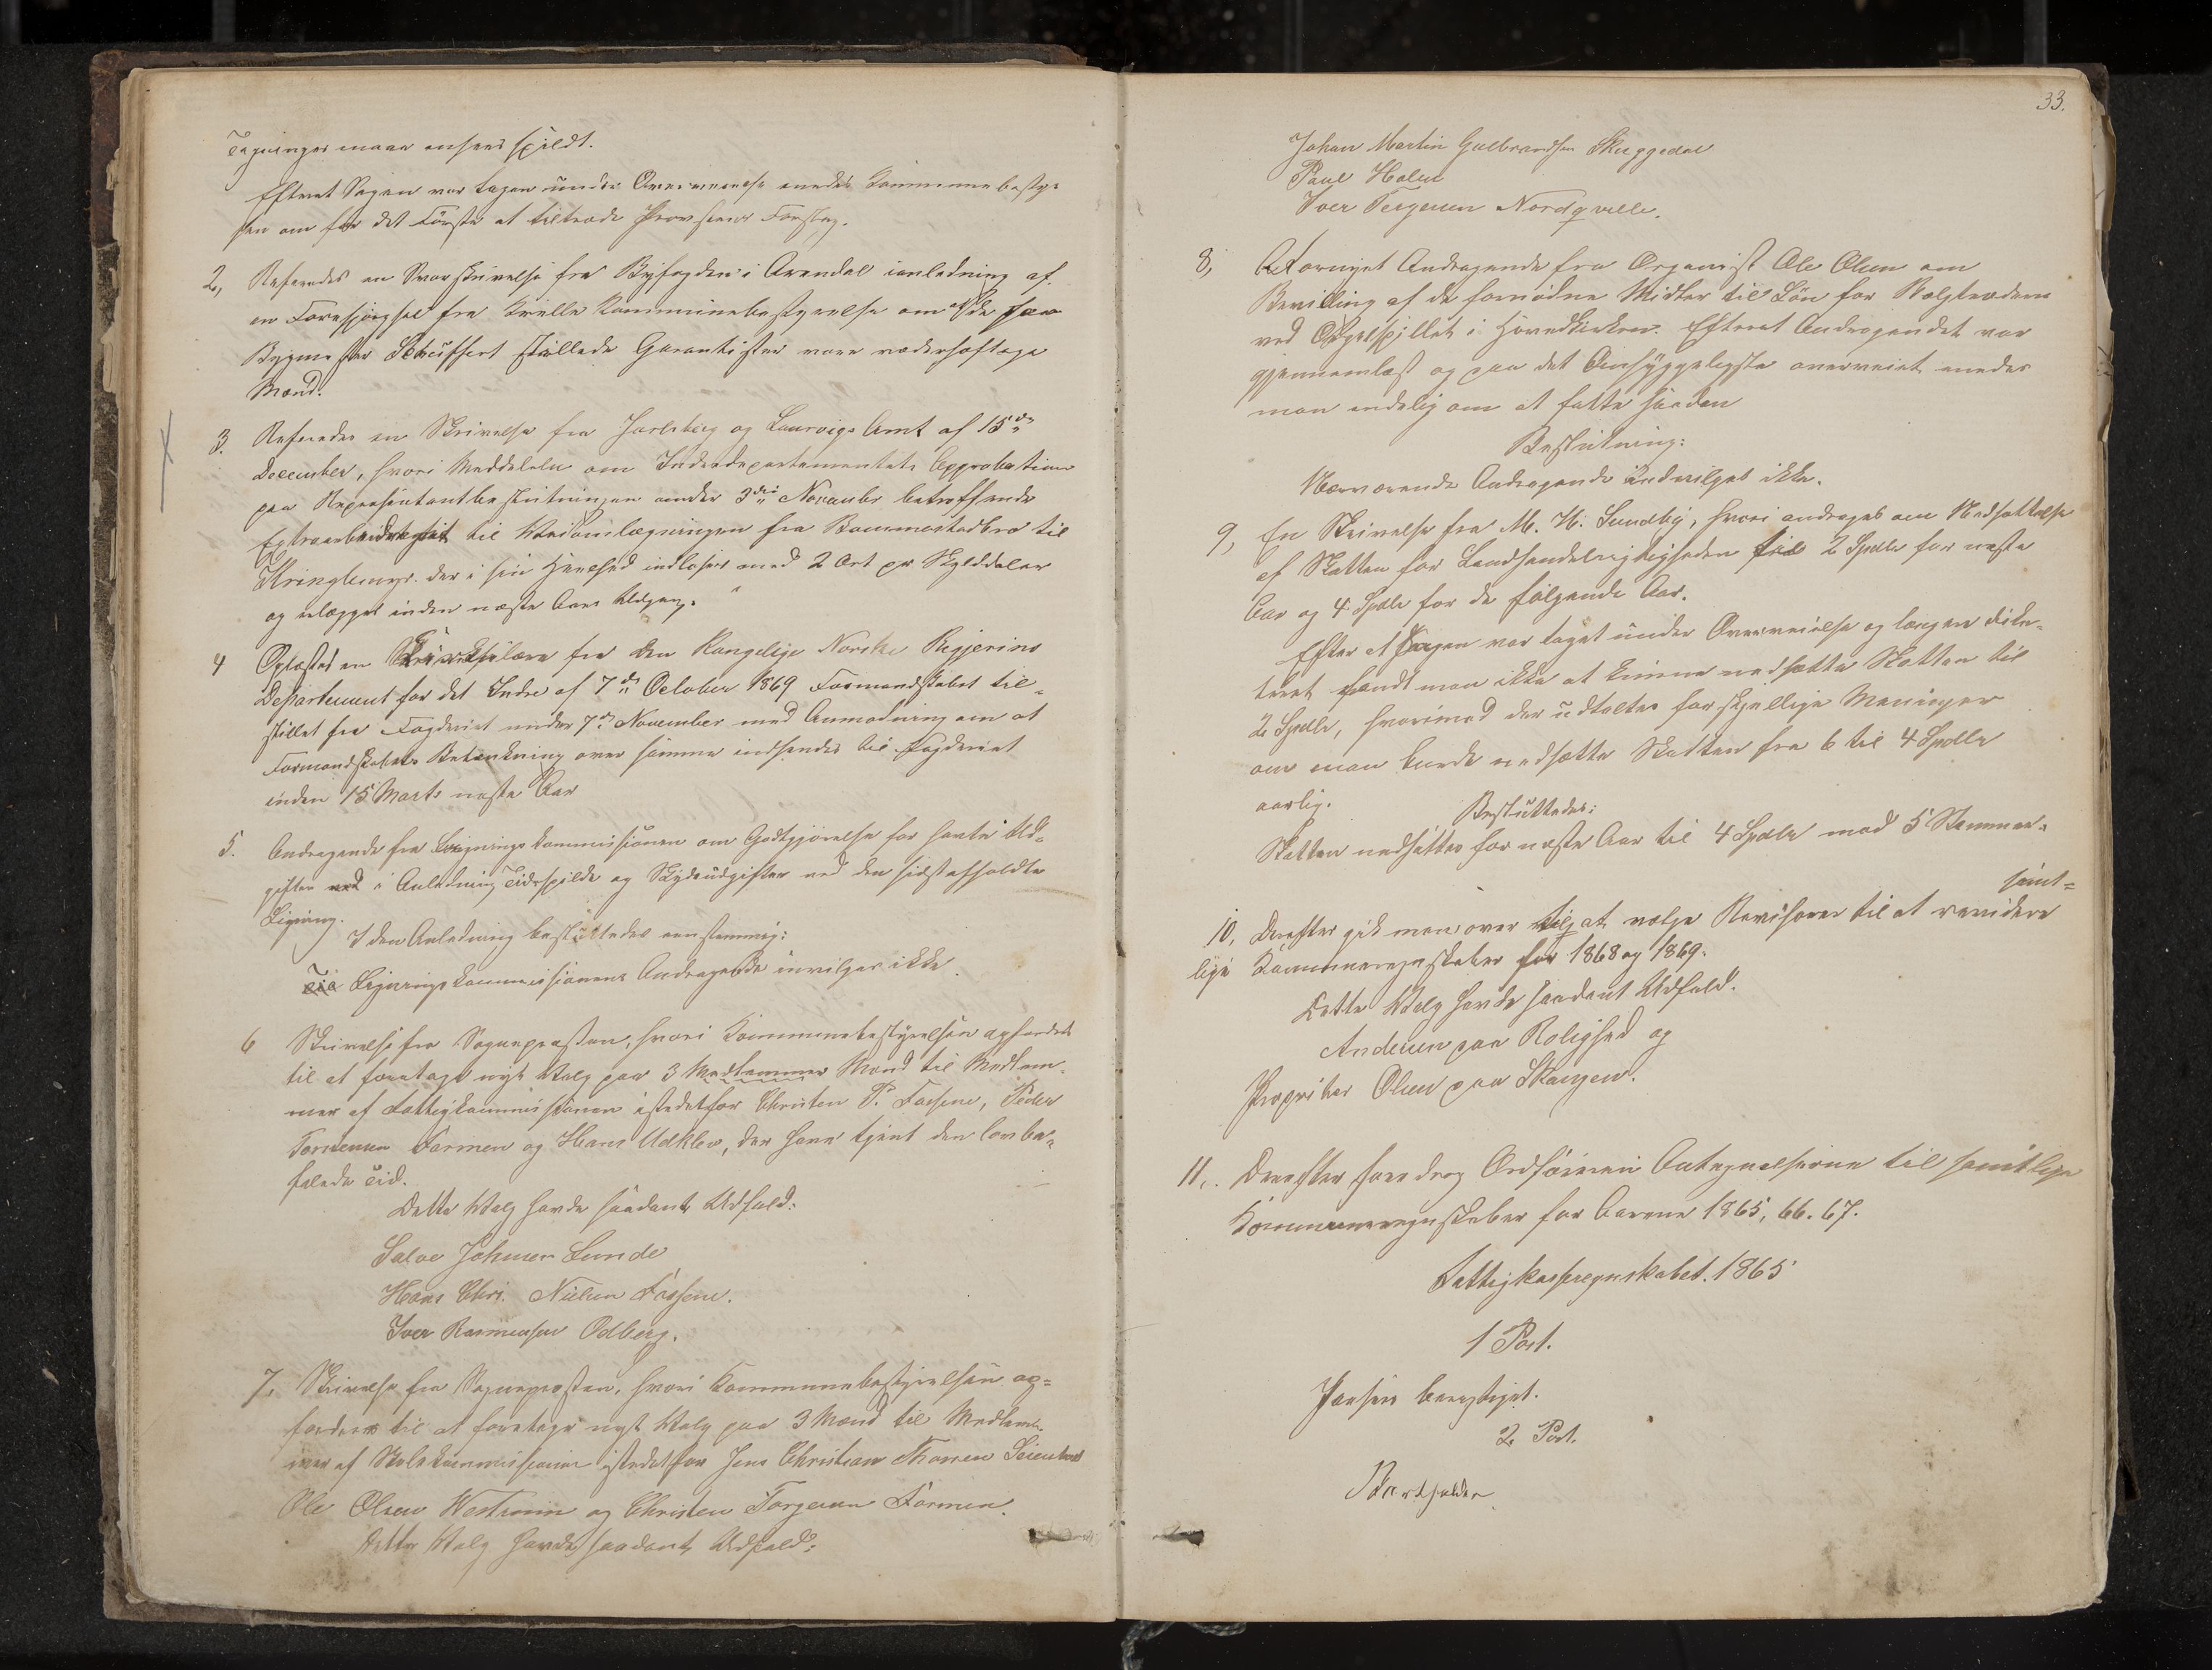 Tegninger maae ansees spildt.
Efterat Sagen var tagen under Overveielse enedes Kommunebesty-
sen om for det Første at tiltræde Provstens Forslag.
2, Refereredes en Svarskrivelse fra Byfogden i Arendal i anledning af
en Forespørgsel fra Kommunebestyrelse om de
Bygmester Scheuffert stillede Garantister vare vederhæftige
Mænd.
3. Refereredes en Skrivelse fra Jarlsberg og Laurvigs Amt af 15de
December, hvori Meddeleles om Indredepartementets Approbation
paa Repræsentantbeslutningen under 3die November betræffende
Extraarbeidspligt til Veiomlægningen fra Bommestadbro til
Kringlemyr. der i sin Heelhed indløses med 2 Ort pr Skylddaler
og udlægges inden næste Aars Udgang.
4 Oplæstes en Cirkulære fra den Kongelige Norske Regjerins
Departement for det Indre af 7de October 1869 Formandskabet til-
stillet fra Fogderiet under 7de November med Anmodning om at
Formandskabets Betænkning over samme indsendes til Fogderiet
inden 15 Marts næste Aar
5. Andragende fra Ligningskommissionen om Godtgjørelse for havte Ud-
gifter ved i Anledning Tidsspilde og Skydsudgifter ved den sidstafholdte
Ligning.
I den Anledning besluttedes eenstemmig:
Ligningskommissionens Andragende invilges ikke.
6 Skrivelse fra Sognepræsten, hvori Kommunebestyrelsen opfordres
til at foretage nyt Valg paa 3 Medlemmer Mænd til Medlem-
mer af Fattigkommissionen istedetfor Christen P. Farmen, Peder
Torstensen Farmen og Hans Udklev, der have tjent den lovbe-
falede Tid.
Dette Valg havde saadant Udfald:
Salve Johnsen Lunde
Hans Chri. Nielsen
Iver Rasmussen Odberg.
7, Skrivelse fra Sognepræsten, hvori Kommunebestyrelsen op-
fordres til at foretage nyt Valg paa 3 Mænd til Medlem-
mer af Skolekommissionen istedetfor Jens Christian Thorsen
Ole Olsen og Christen Torgersen Farmen.
Dette Valg havde saadant Udfald:
33.
Johan Martin Gulbrandsen Skuggedal
Paul Holm
Iver Torgersen Nordqvelle.
8, Fornyet Andragende fra Organist Ole Olsen om
Bevilling af de fornødne Midler til Løn for Bælgtræderen
ved Orgelspillet i Hovedkirken. Efterat Andragendet var
gjennemlæst og paa det Omhyggeligste overveiet enedes
man endelig om at fatte saadan
Beslutning:
Nærværende Andragende indvilges ikke.
9, En Skrivelse fra M. H. Sundby, hvori andrages om Nedsættelse
af Skatten for Landhandelrettigheden til 2 Spdlr for næste
Aar og 4 Spdlr for de følgende Aar.
Efter at Sagen var taget under Overveielse og længere disku-
teret fandt man ikke at kunne nedsætte Skatten til
2 Spdlr, hvorimod der udtaltes forskjellige Meninger
om man burde nedsætte Skatten fra 6 til 4 Spdlr
aarlig.
Besluttedes:
Skatten nedsættes for næste Aar til 4 Spdlr mod 5 Stemmer.
10, Derefter gik man over til at vælge Revisorer til at revidere samt-
lige Kommuneregnskaber for 1868 og 1869.
Dette Valg havde saadant Udfald.
Andersen paa Rolighed og
Propritær Olsen paa Skaugen.
11,. Derefter foredrog Ordføreren Antegnelserne til samtlige
Kommuneregnskaber for Aarene 1865, 66. 67.
Fattigkasseregnskabet. 1865
1 Post.
2. Post.
Bortfalder